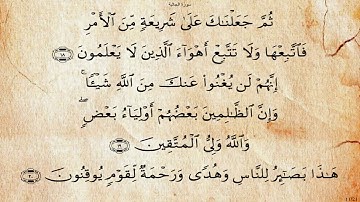 سورة الجاثية
ثُمَّ جَعَلْنَٰكَ عَلَىٰ شَرِيعَةٍ مِّنَ ٱلْأَمْرِ
فَٱتَّبِعْهَا وَلَا تَتَّبِعْ أَهْوَآءَ ٱلَّذِينَ لَا يَعْلَمُونَ ١٨
إِنَّهُمْ لَن يُغْنُوا۟ عَنكَ مِنَ ٱللَّهِ شَيْـًٔا ۚ
وَإِنَّ ٱلظَّٰلِمِينَ بَعْضُهُمْ أَوْلِيَآءُ بَعْضٍ ۖ
وَٱللَّهُ وَلِىُّ ٱلْمُتَّقِينَ ١٩
هَٰذَا بَصَٰٓئِرُ لِلنَّاسِ وَهُدًى وَرَحْمَةٌ لِّقَوْمٍ يُوقِنُونَ ٢٠